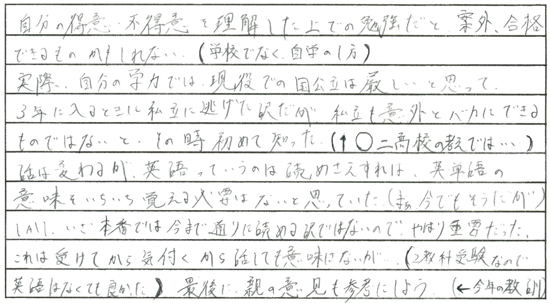 自分の得意・不得意を理解した上での勉強だと、案外、合格
できるものかもしれない…(学校でなく、自学の1方)
実際、自分の学力では、現役での国公立は厳しいと思って
3年に入るときに私立に逃げた訳だが、私立も意外とバカにできる
ものではないと、その時初めて知った。(↑〇二高校の教えでは…)
話は変わるが、英語っていうのは読めさえすれば、英単語の
意味をいちいち覚える必要はないと思っていた。(今でもそうだが)
しかし、いざ本番では今まで通りに読める訳ではないので やはり重要だった。
これは受けてから気付くから話しても意味はないが…(2教科受験なので
英語はなくても良かった) 最後に、親の意見も参考にしよう (←今年の教訓)